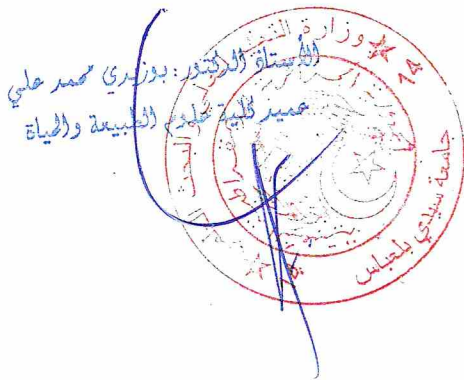 الأستاذ الدكتور: بوزيدي محمد علي
عميد كلية علوم الطبيعة والحياة
وزارة
جامعة سيدي بلعباس
14